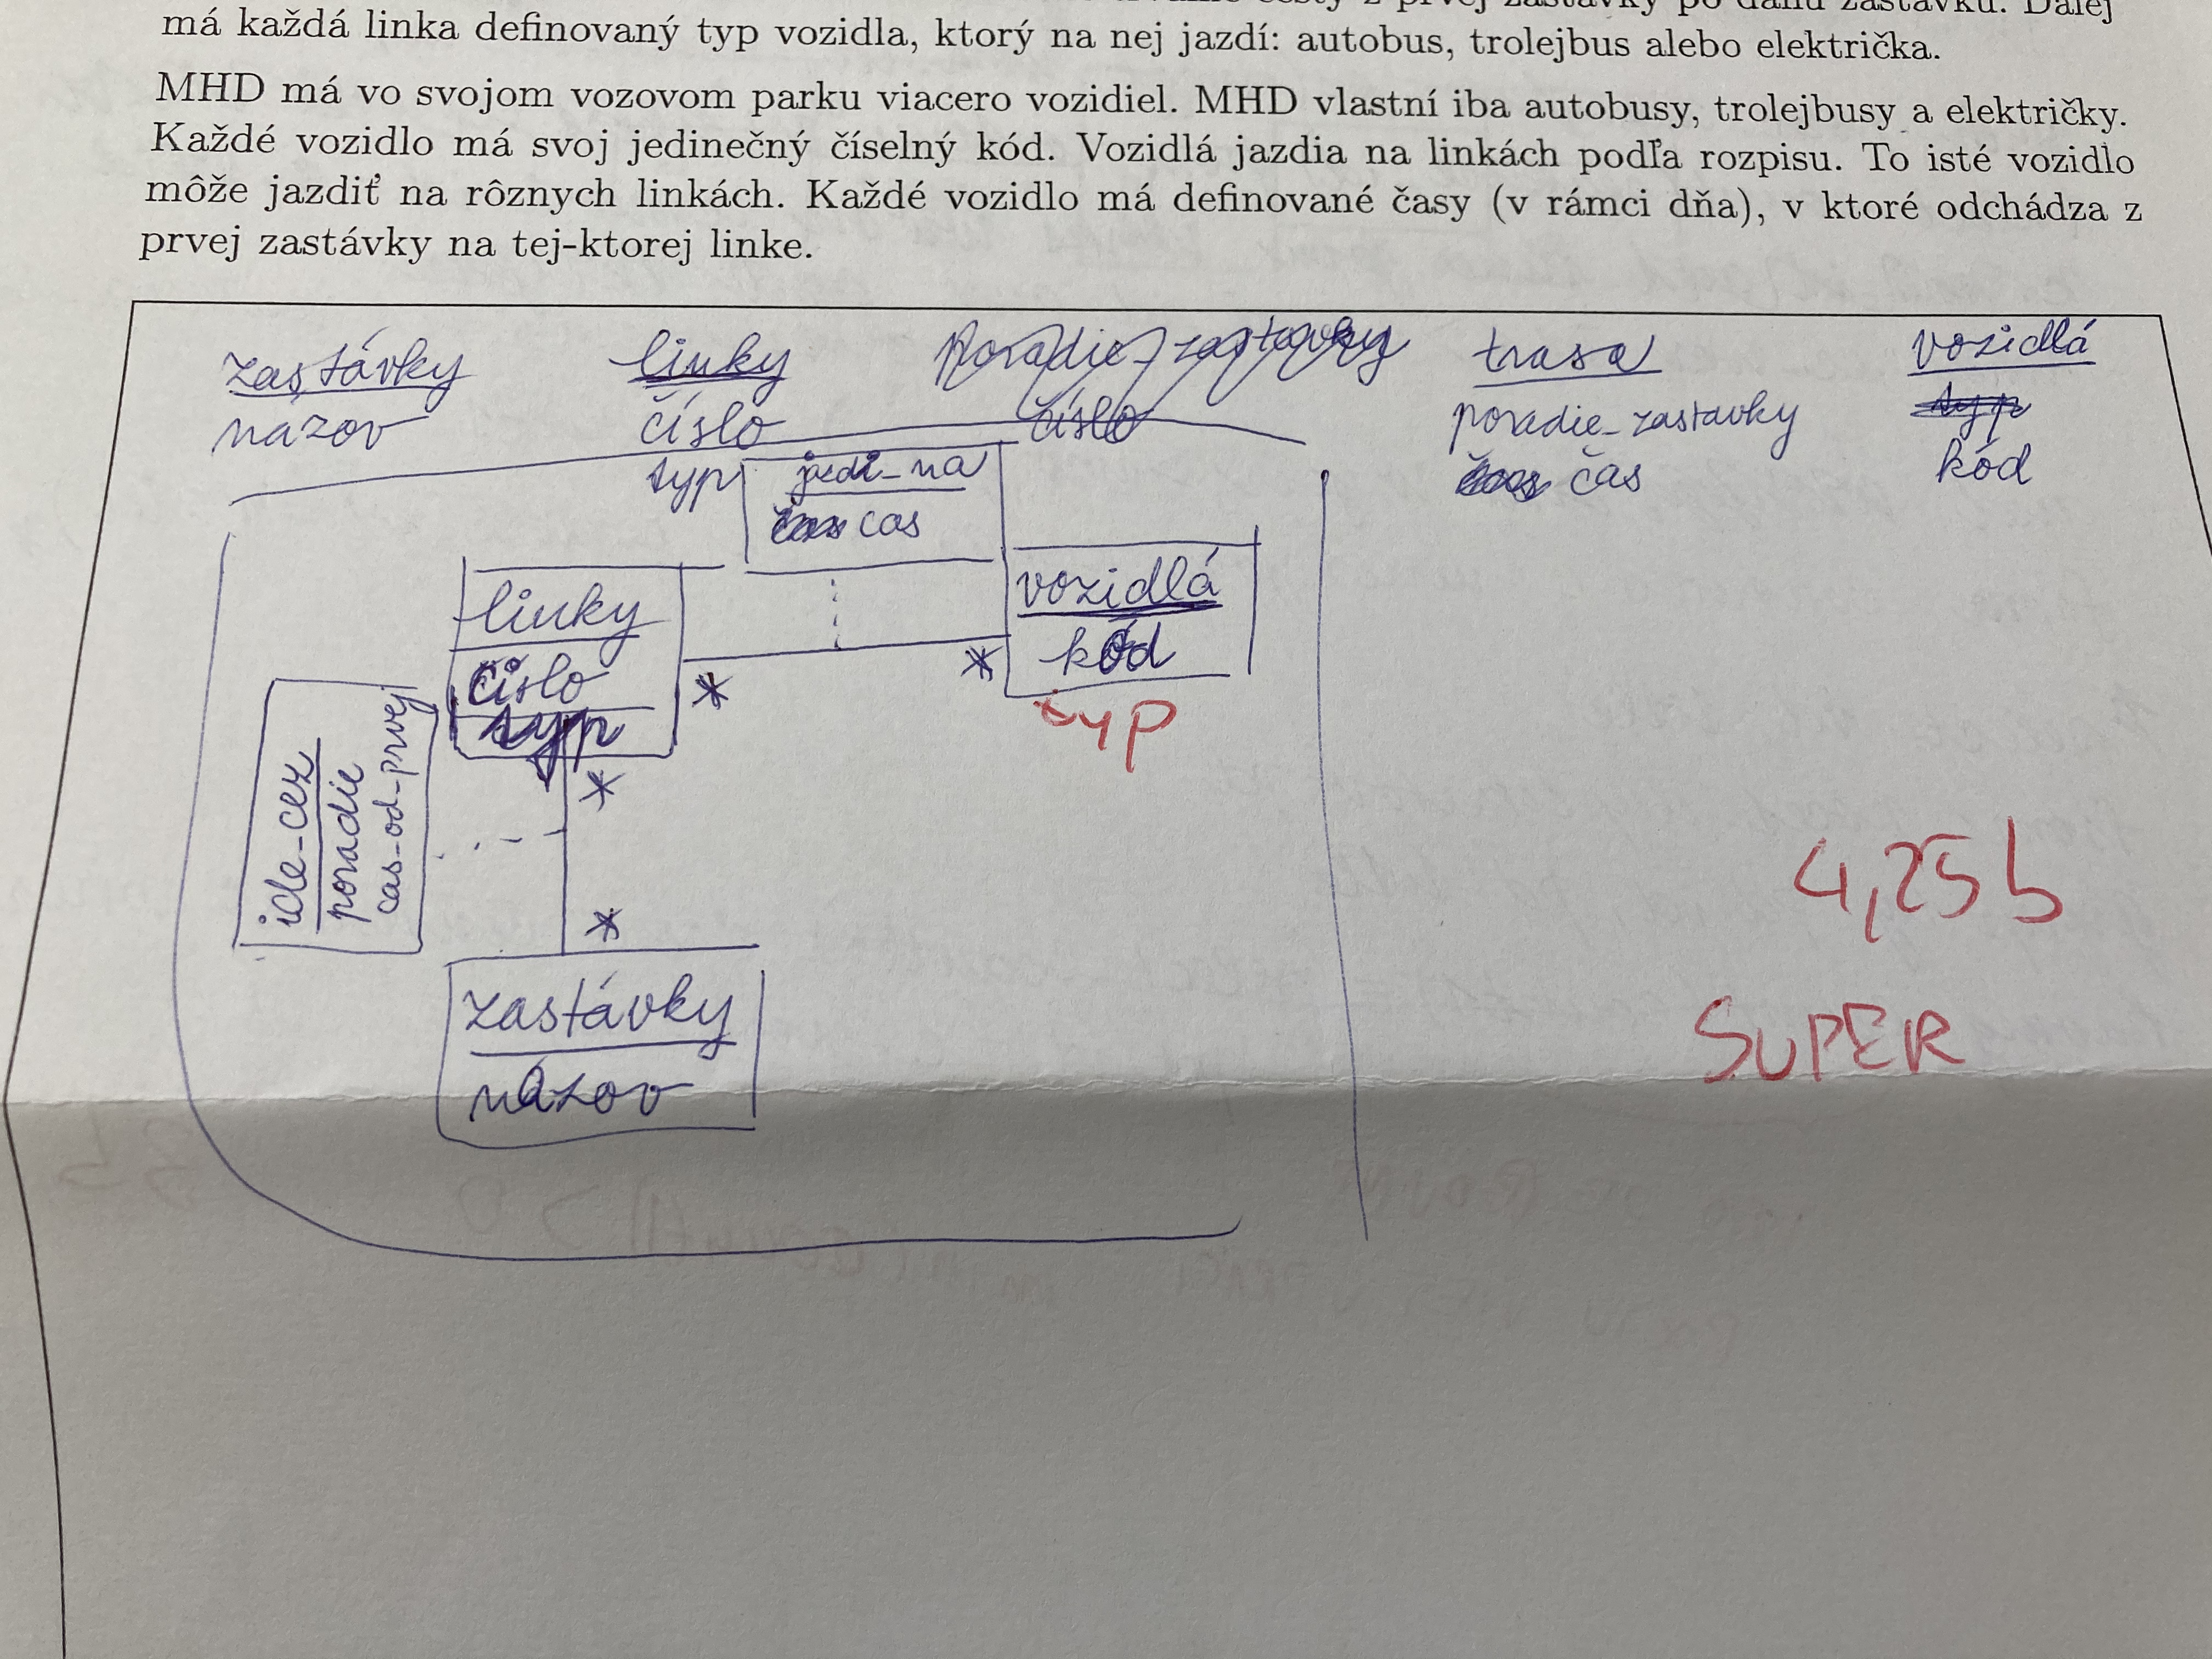 z prvej zastávky po danú zastávku. Ďalej
má každá linka definovaný typ vozidla, ktorý na nej jazdí: autobus, trolejbus alebo električka.
MHD má vo svojom vozovom parku viacero vozidiel. MHD vlastní iba autobusy, trolejbusy a električky.
Každé vozidlo má svoj jedinečný číselný kód. Vozidlá jazdia na linkách podľa rozpisu. To isté vozidlo
môže jazdiť na rôznych linkách. Každé vozidlo má definované časy (v rámci dňa), v ktoré odchádza z
prvej zastávky na tej-ktorej linke.
zastávky
názov
linky
číslo
typ
poradie_zastavky
číslo
trasa
poradie_zastavky
čas
vozidlá
typ
kód
cas
linky
číslo
typ
*
*
vozidlá
kód
typ
ide_cez
poradie
cas_od_prvej
*
*
zastávky
názov
4,25 b
SUPER